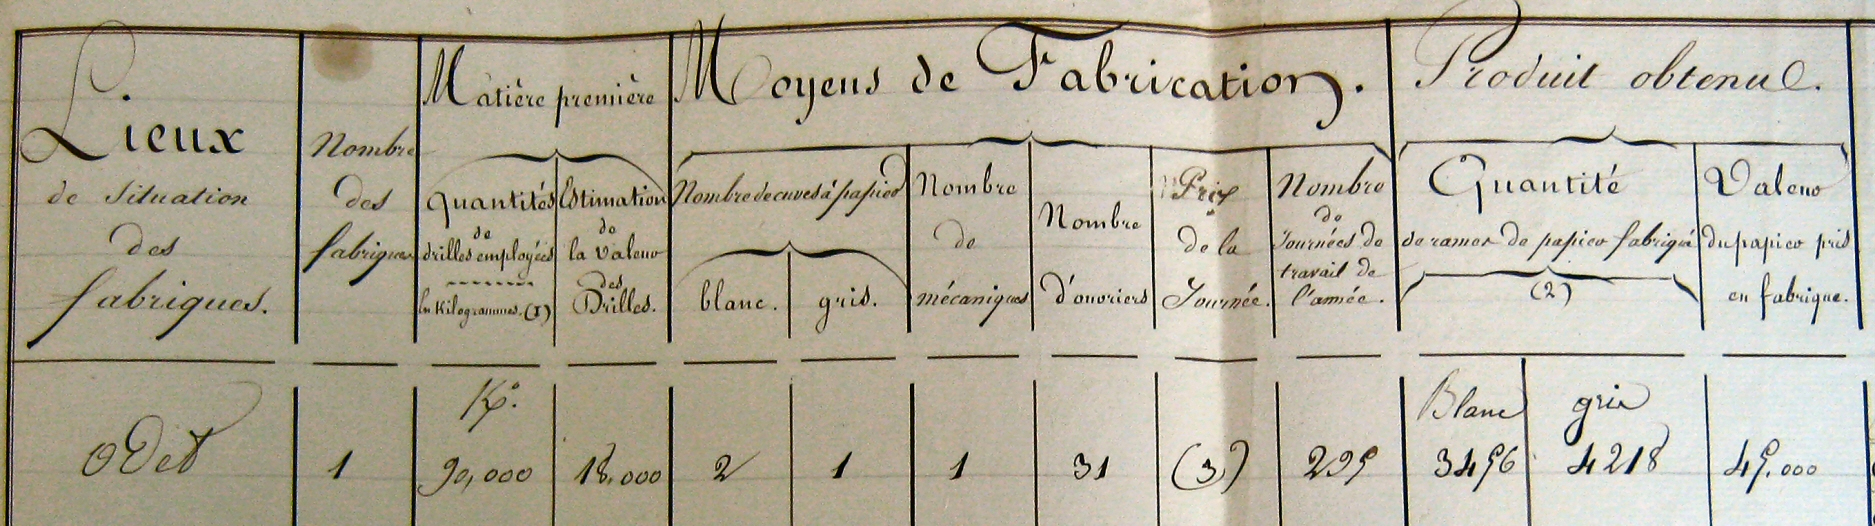 Lieux
de situation
des
fabriques.
Nombre
des
fabriques
Matière première
Quantités
de
drilles employées
En Kilogrammes. (1)
Estimation
de
la valeur
des
Drilles.
Moyens de Fabrication.
Nombre de cuves à papier
blanc.
gris.
Nombre
de
mécaniques
Nombre
d'ouvriers
Prix
de la
Journée.
Nombre
de
Journées de
travail de
l'année.
Produit obtenu.
Quantité
de rames de papier fabriqué
(2)
Valeur
du papier pris
en fabrique.
Odet
1
Ko.
90,000
18,000
2
1
1
31
(3)
295
Blanc
3456
gris
4218
45,000